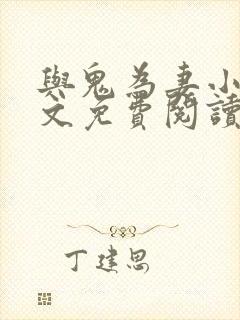 與鬼為妻小
文免費閱讀
丁建思